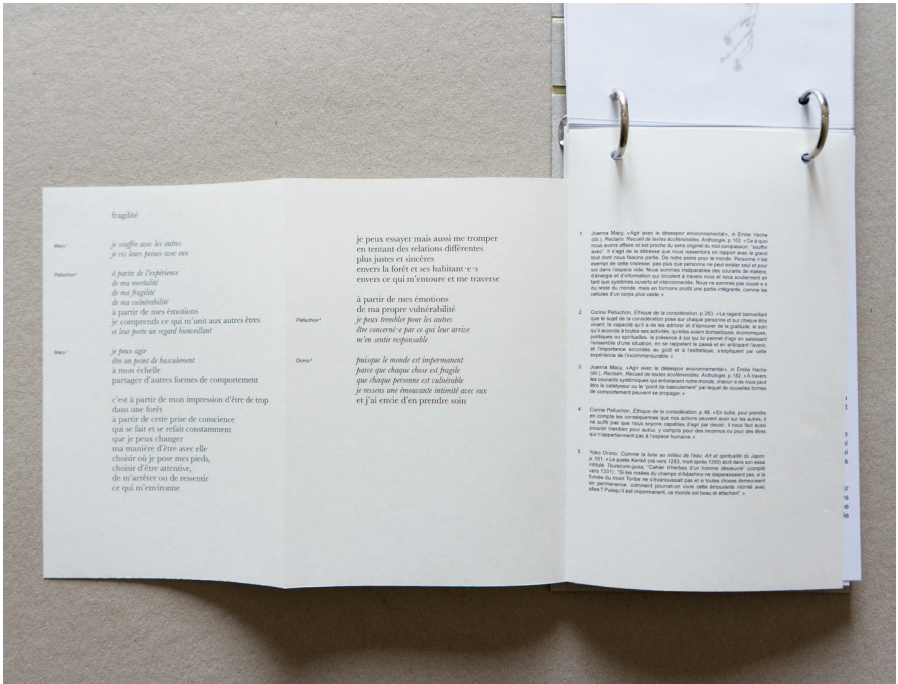 fragilité
Macy¹
je souffre avec les autres
je vis leurs peines avec eux
Pelluchon²
à partir de l'expérience
de ma mortalité
de ma fragilité
de ma vulnérabilité
à partir de mes émotions
je comprends ce qui m'unit aux autres êtres
et leur porte un regard bienveillant
Macy³
je peux agir
être un point de basculement
à mon échelle
partager d'autres formes de comportement
c'est à partir de mon impression d'être de trop
dans une forêt
à partir de cette prise de conscience
qui se fait et se refait constamment
que je peux changer
ma manière d'être avec elle
choisir où je pose mes pieds,
choisir d'être attentive,
de m'arrêter ou de ressentir
ce qui m'environne
je peux essayer mais aussi me tromper
en tentant des relations différentes
plus justes et sincères
envers la forêt et ses habitant·e·s
envers ce qui m'entoure et me traverse
à partir de mes émotions
de ma propre vulnérabilité
Pelluchon⁴
je peux trembler pour les autres
être concerné·e par ce qui leur arrive
m'en sentir responsable
Onino⁵
puisque le monde est impermanent
parce que chaque chose est fragile
que chaque personne est vulnérable
je ressens une émouvante intimité avec eux
et j'ai envie d'en prendre soin
1 Joanna Macy, «Agir avec le désespoir environnemental», in Émilie Hache
(dir.), Reclaim. Recueil de textes écoféministes. Anthologie, p. 162. «Ce à quoi
nous avons affaire ici est proche du sens originel du mot compassion: "souffrir
avec". Il s'agit de la détresse que nous ressentons en rapport avec le grand
tout dont nous faisons partie. De notre peine pour le monde. Personne n'est
exempt de cette tristesse, pas plus que personne ne peut exister seul et pour
soi dans l'espace vide. Nous sommes inséparables des courants de matière,
d'énergie et d'information qui circulent à travers nous et nous soutiennent en
tant que systèmes ouverts et interconnectés. Nous ne sommes pas coupé·e·s
du reste du monde, mais en formons plutôt une partie intégrante, comme les
cellules d'un corps plus vaste.»
2 Corine Pelluchon, Éthique de la considération, p. 253. «Le regard bienveillant
que le sujet de la considération pose sur chaque personne et sur chaque être
vivant, la capacité qu'il a de les admirer et d'éprouver de la gratitude, le soin
qu'il accorde à toutes ses activités, qu'elles soient domestiques, économiques,
politiques ou spirituelles, la présence à soi qui lui permet d'agir en saisissant
l'ensemble d'une situation, en se rappelant le passé et en anticipant l'avenir,
et l'importance accordée au goût et à l'esthétique, s'expliquent par cette
expérience de l'incommensurable.»
3 Joanna Macy, «Agir avec le désespoir environnemental», in Émilie Hache
(dir.), Reclaim. Recueil de textes écoféministes. Anthologie, p. 182. «À travers
les courants systémiques qui entrelacent notre monde, chacun·e de nous peut
être le catalyseur ou le "point de basculement" par lequel de nouvelles formes
de comportement peuvent se propager.»
4 Corine Pelluchon, Éthique de la considération, p. 46. «En outre, pour prendre
en compte les conséquences que nos actions peuvent avoir sur les autres, il
ne suffit pas que nous soyons capables d'agir par devoir; il nous faut aussi
pouvoir trembler pour autrui, y compris pour des inconnus ou pour des êtres
qui n'appartiennent pas à l'espèce humaine.»
5 Yoko Orimo, Comme la lune au milieu de l'eau. Art et spiritualité du Japon,
p. 101. «Le poète Kenkō (né vers 1283, mort après 1350) écrit dans son essai
intitulé Tsurezure-gusa, "Cahier d'herbes d'un homme désœuvré" (compilé
vers 1331): "Si les rosées du champs d'Adashino ne disparaissaient pas, si la
fumée du mont Toribe ne s'évanouissait pas et si toutes choses demeuraient
en permanence, comment pourrait-on vivre cette émouvante intimité avec
elles? Puisqu'il est impermanent, ce monde est beau et attachant".»